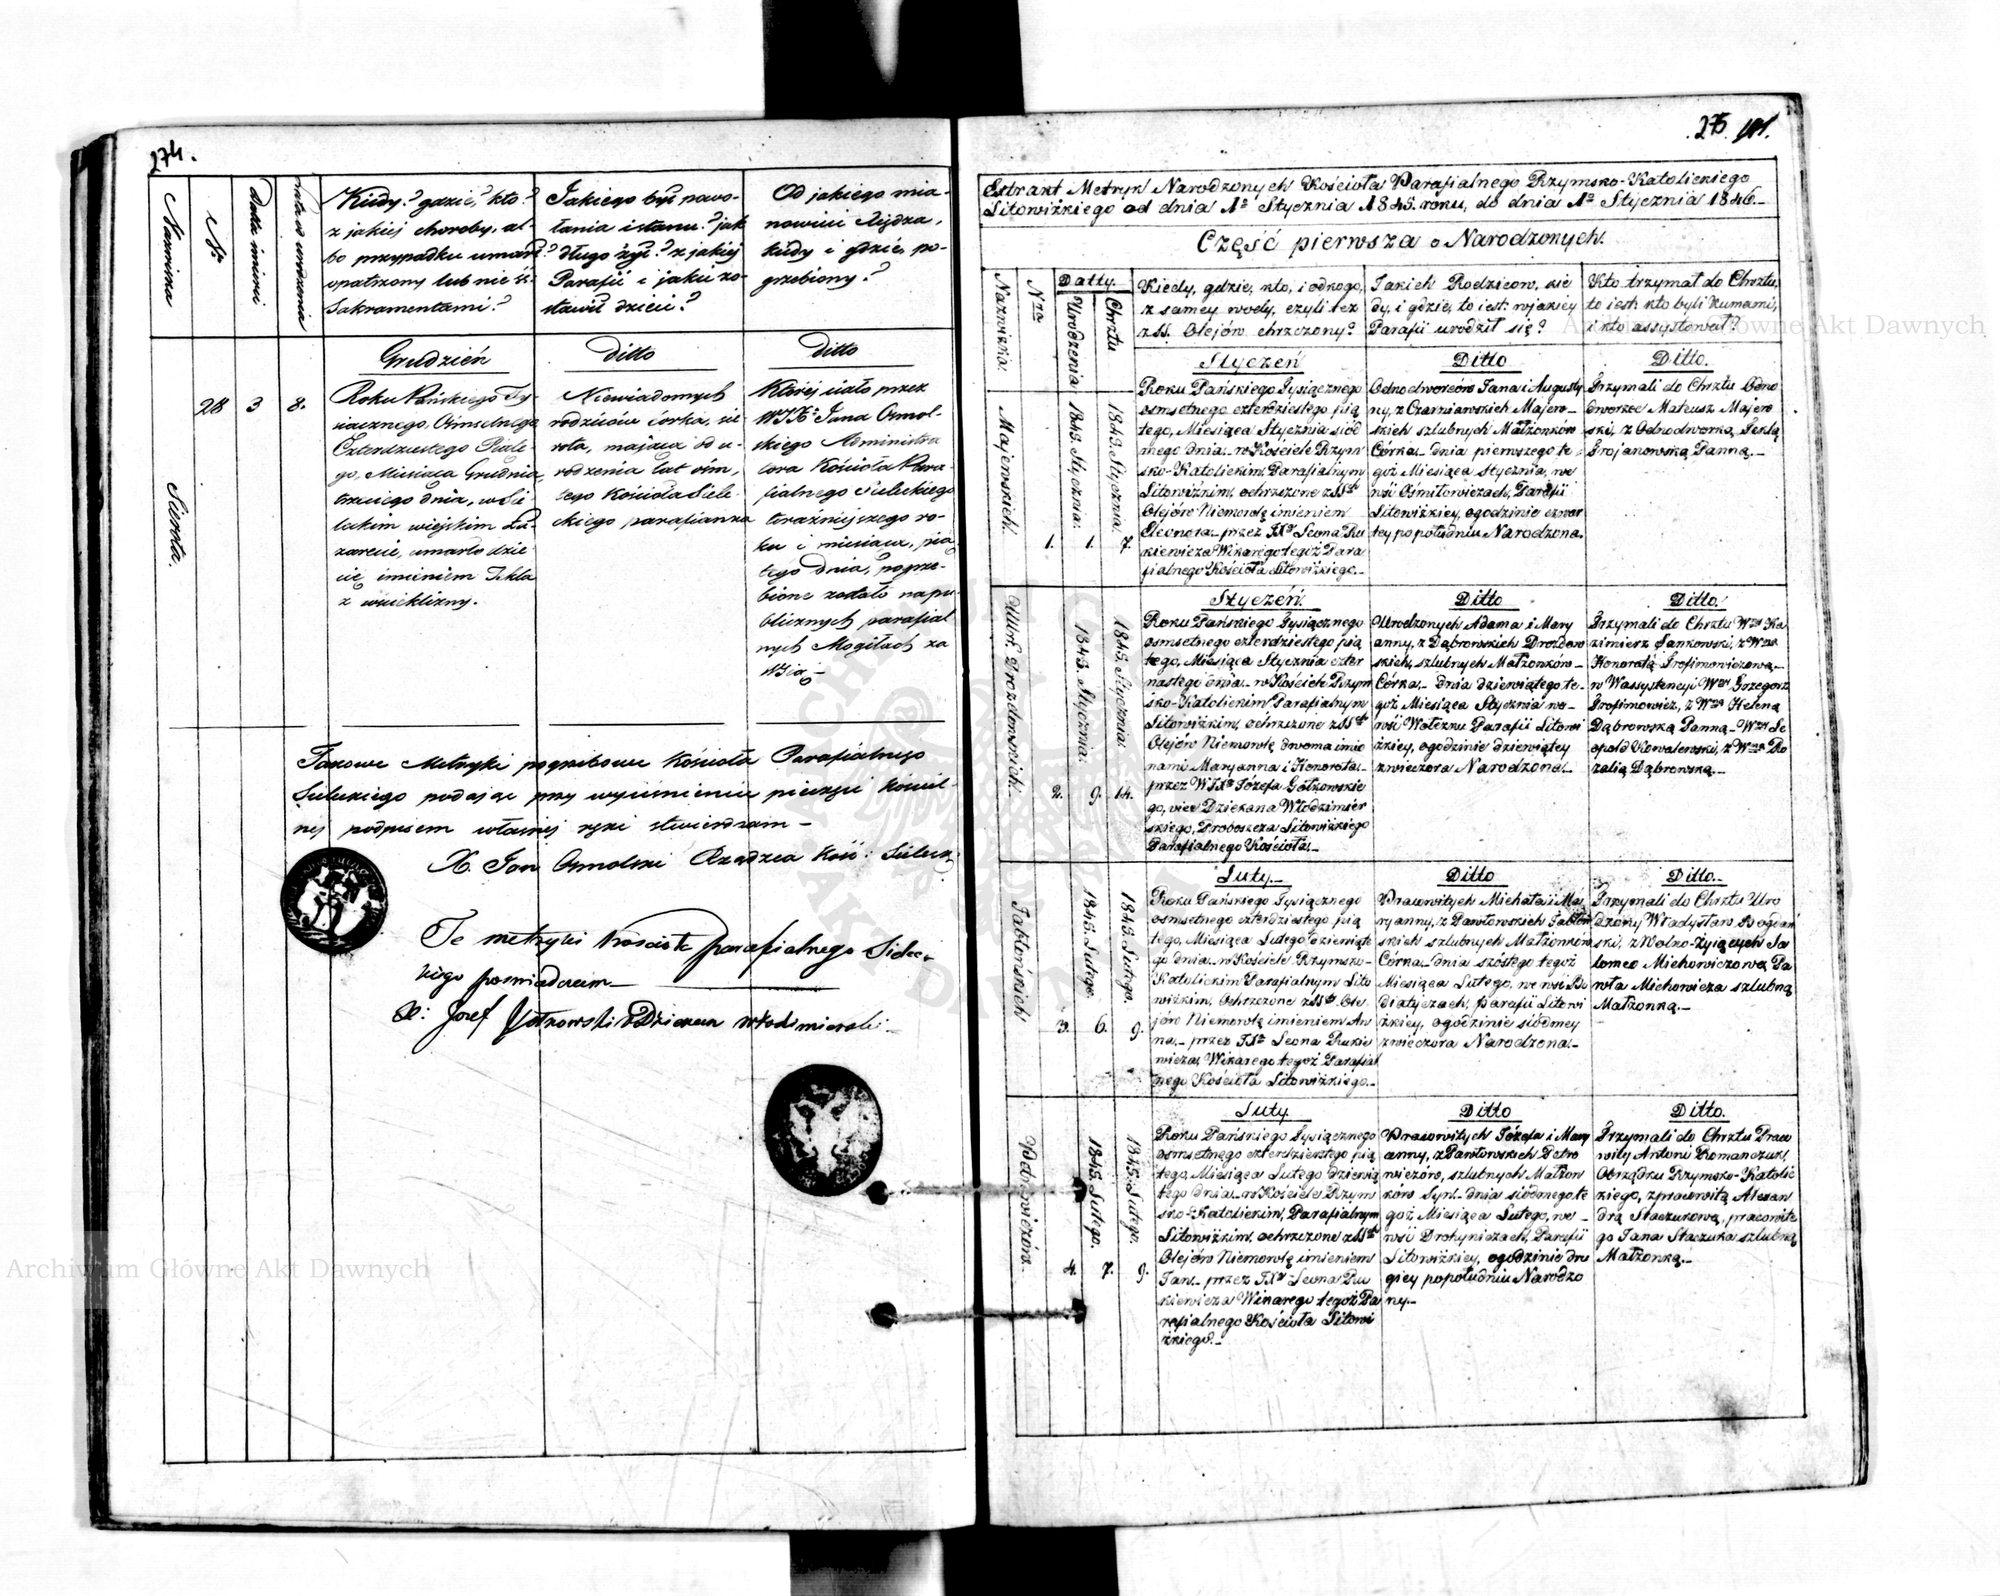 274.
Nazwiska
Nr
Data śmierci
Lata od urodzenia
Kiedy? gdzie? kto?
z jakiéj choroby, al-
bo przypadku umarł
opatrzony lub nie śś.
Sakramentami?
Jakiego był powo-
łania i stanu? jak
długo żył? z jakiéj
Parafii i jakie zo-
stawił dzieci?
Od jakiego mia-
nowicie Księdza,
kiedy i gdzie, po-
grzebiony?
Sierota.
28
3
8.
Grudzień
Roku Pańskiego Ty-
siącznego Ośmsetnego
Czterdziestego Piąte-
go, Miesiąca Grudnia,
trzeciego dnia, w Sie-
leckim wiejskim La-
zarecie, umarło dzie-
cię imieniem Tekla
z wścieklizny.
ditto
Niewiadomych
rodziców córka, sie-
rota, mająca od u-
rodzenia lat ośm,
tego Kościoła Siele-
ckiego parafianka
ditto
Któréj ciało przez
WJX. Jana Osmol-
skiego Administra
tora Kościoła Para-
fialnego Sieleckiego
teraźniejszego ro-
ku i miesiąca, pią-
tego dnia, pogrze-
bione zostało na pu-
blicznych parafial
nych Mogiłach za
wsią.-
Takowe Metryki pogrzebowe Kościoła Parafialnego
Sieleckiego podając przy wyciśnieniu pieczęci kościel-
néj podpisem własnéj ręki stwierdzam -
X. Jan Osmolski Rządzca Kość: Sieleck:
Te metryki Kościoła parafialnego Sielec-
kiego poswiadczam
X: Jozef Gotkowski V Dziekan Włodzimierski -
275. 101.
Extrakt Metryk Narodzonych Kościoła Parafialnego Rzymsko-Katolickiego
Litowizkiego od dnia 1o Stycznia 1845. roku, do dnia 1o Stycznia 1846.-
Część pierwsza o Narodzonych.
Nazwiska.
Nra
Datty.
Urodzenia
Chrztu
Kiedy, gdzie, kto, i od kogo,
z samey wody, czyli też
z SS. Olejów chrzczony?
Jakich Rodziców, kie
dy, i gdzie, to iest: w jakiey
Parafii urodził się?
Kto trzymał do Chrztu,
to iest: kto byli Kumami,
i kto assystował?
Majewskich.
1.
1845. Stycznia.
1.
1845. Stycznia.
7.
Styczeń
Roku Pańskiego Tysiącznego
osmsetnego czterdziestego pią
tego, Miesiąca Stycznia siód
mego dnia.- w Kościele Rzym
sko-Katolickim Parafialnym
Litowizkim, ochrzczone z SStu
Olejów Niemowlę imieniem
Eleonora.- przez JXa Leona Ru
kiewicza Wikarego tegoż Para
fialnego Kościoła Litowizkiego.-
Ditto
Odnodworców Jana i Augusty
ny, z Czarniawskich Majew-
skich szlubnych Małżonków
Córka.- dnia pierwszego te-
goż Miesiąca Stycznia, we
wsi Ośmiłowiczach, Parafii
Litowizkiey, o godzinie czwar
tey po południu Narodzona.
Ditto.
Trzymali do Chrztu Odno
dworzec Mateusz Majew
ski, z Odnodworką Teklą
Trojanowską Panną.-
Urod. Drozdowskich.
2.
1845. Stycznia.
9.
1845. Stycznia.
14.
Styczeń.
Roku Pańskiego Tysiącznego
osmsetnego czterdziestego pią
tego, Miesiąca Stycznia czter
nastego dnia.- w Kościele Rzym
sko-Katolickim Parafialnym
Litowizkim, ochrzczone z SStu
Olejów Niemowlę dwoma imio
nami Maryanna i Honorata.-
przez WJXa Józefa Gotkowskie
go, vice Dziekana Włodzimier
skiego, Proboszcza Litowizkiego
Parafialnego Kościoła.-
Ditto
Urodzonych Adama i Mary
anny, z Dąbrowskich Drozdow
skich, szlubnych Małżonków-
Córka.- dnia dziewiątego te-
goż Miesiąca Stycznia we-
wsi Woteznu Parafii Litowi
zkiey, o godzinie dziewiątey
z wieczora Narodzona.-
Ditto.
Trzymali do Chrztu Wny Ka
zimierz Jankowski, z Wną
Honoratą Trofimowiczową.-
w Wassystencyi Wny Grzegorz
Trofimowicz, z Wną Heleną
Dąbrowską Panną.- Wny Le
opold Kowalewski, z Wną Ro
zalią Dąbrowską.-
Jabłońskich
3.
1845. Lutego.
6.
1845. Lutego.
9.
Luty.-
Roku Pańskiego Tysiącznego
osmsetnego czterdziestego pią
tego, Miesiąca Lutego dziewiąte
go dnia.- w Kościele Rzymsko-
Katolickim Parafialnym Lito
wizkim, Ochrzczone z SStu Ole
jów Niemowlę imieniem An
na.- przez JXa Leona Rukie
wicza Wikarego tegoż Parafial
nego Kościoła Litowizkiego.-
Ditto
Pracowitych Michała i Ma
ryanny, z Pawłowskich Jabłoń
skich szlubnych Małżonków
Córka.- dnia szóstego tegoż
Miesiąca Lutego, we wsi Bo
diatyczach, Parafii Litowi
zkiey, o godzinie siódmey
z wieczora Narodzona.-
Ditto.-
Trzymali do Chrztu Uro
dzony Władysław Bogdań
ski, z Wolno-żyiących Sa
lomeo Michowiczową Pa
wła Michowicza szlubną
Małżonką.-
Pdrowiczów.
4.
1845. Lutego.
7.
1845. Lutego.
9.
Luty
Roku Pańskiego Tysiącznego
osmsetnego czterdziestego pią
tego, Miesiąca Lutego dziewią
tego dnia.- w Kościele Rzym
sko-Katolickim, Parafialnym
Litowizkim, ochrzczone z SStu
Olejów Niemowlę imieniem
Jan.- przez JXa Leona Ru
kiewicza Wikarego tegoż Pa
rafialnego Kościoła Litowi
zkiego.-
Ditto
Pracowitych Józefa i Mary
anny, z Pawłowskich Petro
wiczów, szlubnych Małżon
ków Syn.- dnia siódmego te
goż, Miesiąca Lutego, we-
wsi Drohyniczach, Parafii
Litowizkiey, o godzinie dru
giey po południu Narodzo
ny.-
Ditto.
Trzymali do Chrztu Praco
wity Antoni Romanczuk,
Obrządku Rzymsko-Katolic
kiego, z pracowitą Alexan
drą Staczukową, pracowite
go Jana Staczuka szlubną
Małżonką.-
Archiwum Główne Akt Dawnych
Główne Akt Dawnych